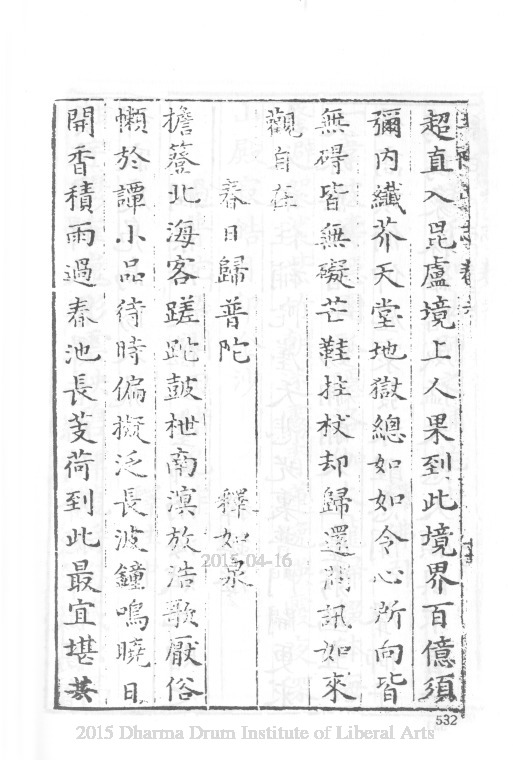 超直入毘盧境上人果到此境界百億須
彌內纖芥天堂地獄總如如令心所向皆
無碍皆無礙芒鞋拄杖却歸還借訊如來
觀自在
春日歸普陀　釋如泉
擔簦北海客蹉跎鼓枻南溟放浩歌厭俗
懶於譚小品待時偏擬泛長波鐘鳴曉日
開香積雨過春池長芰荷到此最宜堪共
532
2015-04-16
2015 Dharma Drum Institute of Liberal Arts